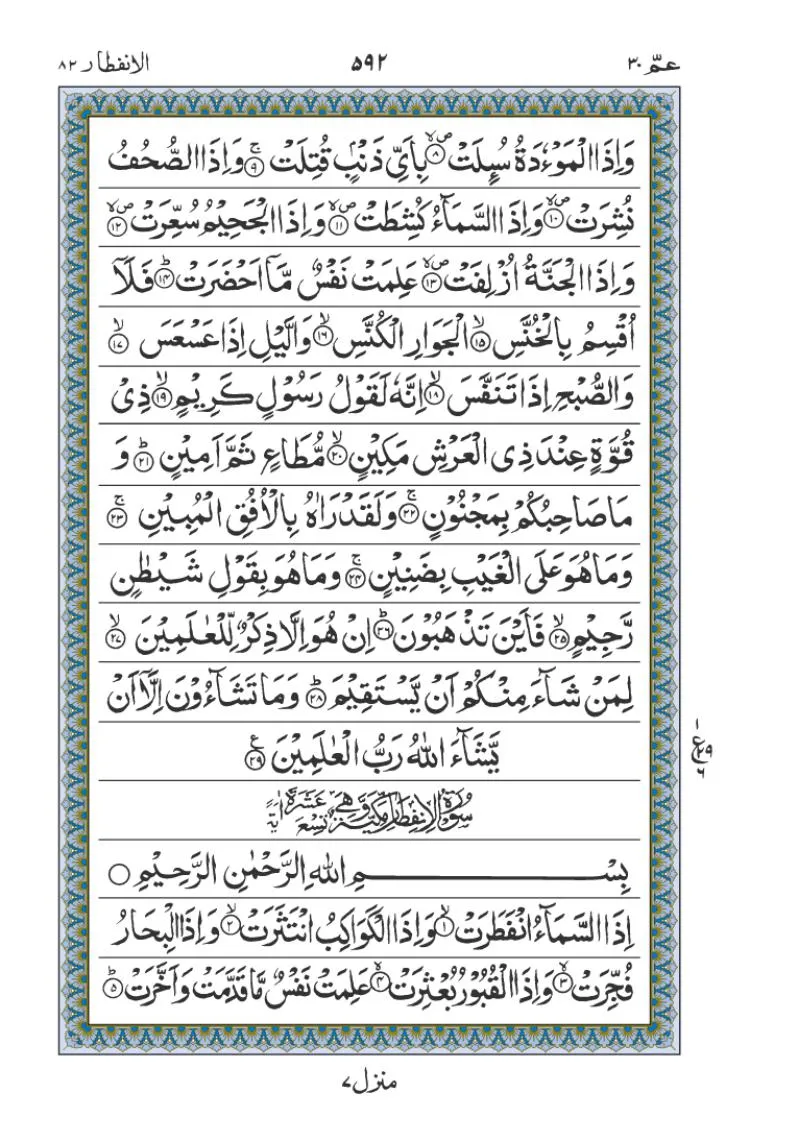 عمّ ٣٠ ۵۹۲ الانفطار ٨٢
وَاِذَا الْمَوْءٗدَةُ سُىِٕلَتْ ۪ۙ‏﴿۸﴾ بِاَیِّ ذَنْۢبٍ قُتِلَتْ ۚ﴿۹﴾ وَاِذَا الصُّحُفُ
نُشِرَتْ ۪ۙ‏﴿۱۰﴾ وَاِذَا السَّمَآءُ كُشِطَتْ ۪ۙ‏﴿۱۱﴾ وَاِذَا الْجَحِیْمُ سُعِّرَتْ ۪ۙ‏﴿۱۲﴾
وَاِذَا الْجَنَّةُ اُزْلِفَتْ ۪ۙ‏﴿۱۳﴾ عَلِمَتْ نَفْسٌ مَّاۤ اَحْضَرَتْ ؕ﴿۱۴﴾ فَلَاۤ
اُقْسِمُ بِالْخُنَّسِ ۙ﴿۱۵﴾ الْجَوَارِ الْكُنَّسِ ۙ﴿۱۶﴾ وَالَّیْلِ اِذَا عَسْعَسَ ۙ﴿۱۷﴾
وَالصُّبْحِ اِذَا تَنَفَّسَ ۙ﴿۱۸﴾ اِنَّهٗ لَقَوْلُ رَسُوْلٍ كَرِیْمٍ ۙ﴿۱۹﴾ ذِیْ
قُوَّةٍ عِنْدَ ذِی الْعَرْشِ مَكِیْنٍ ۙ﴿۲۰﴾ مُّطَاعٍ ثَمَّ اَمِیْنٍ ؕ﴿۲۱﴾ وَ
مَا صَاحِبُكُمْ بِمَجْنُوْنٍ ۚ﴿۲۲﴾ وَلَقَدْ رَاٰهُ بِالْاُفُقِ الْمُبِیْنِ ۚ﴿۲۳﴾
وَمَا هُوَ عَلَی الْغَیْبِ بِضَنِیْنٍ ۚ﴿۲۴﴾ وَمَا هُوَ بِقَوْلِ شَیْطٰنٍ
رَّجِیْمٍ ۙ﴿۲۵﴾ فَاَیْنَ تَذْهَبُوْنَ ؕ﴿۲۶﴾ اِنْ هُوَ اِلَّا ذِكْرٌ لِّلْعٰلَمِیْنَ ۙ﴿۲۷﴾
لِمَنْ شَآءَ مِنْكُمْ اَنْ یَّسْتَقِیْمَ ؕ﴿۲۸﴾ وَمَا تَشَآءُوْنَ اِلَّاۤ اَنْ
یَّشَآءَ اللّٰهُ رَبُّ الْعٰلَمِیْنَ ﴿۲۹﴾ع
١ ع ٢٩ ٦
سُوْرَةُ الْاِنْفِطَارِ مَكِّیَّةٌ وَّهِیَ تِسْعَ عَشَرَةَ اٰیَةً
بِسْمِ اللّٰهِ الرَّحْمٰنِ الرَّحِیْمِ ○
اِذَا السَّمَآءُ انْفَطَرَتْ ۙ﴿۱﴾ وَاِذَا الْكَوَاكِبُ انْتَثَرَتْ ۙ﴿۲﴾ وَاِذَا الْبِحَارُ
فُجِّرَتْ ۙ﴿۳﴾ وَاِذَا الْقُبُوْرُ بُعْثِرَتْ ۙ﴿۴﴾ عَلِمَتْ نَفْسٌ مَّا قَدَّمَتْ وَاَخَّرَتْ ؕ﴿۵﴾
منزل ٧